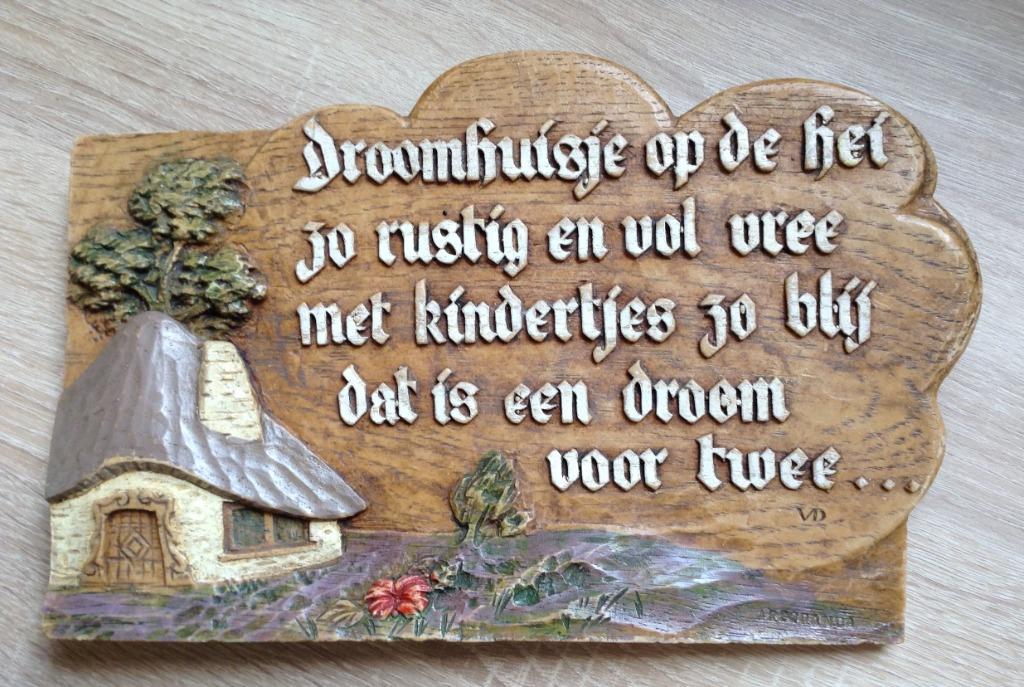 Droomhuisje op de hei
zo rustig en vol vree
met kindertjes zo blij
dat is een droom
voor twee...
VD